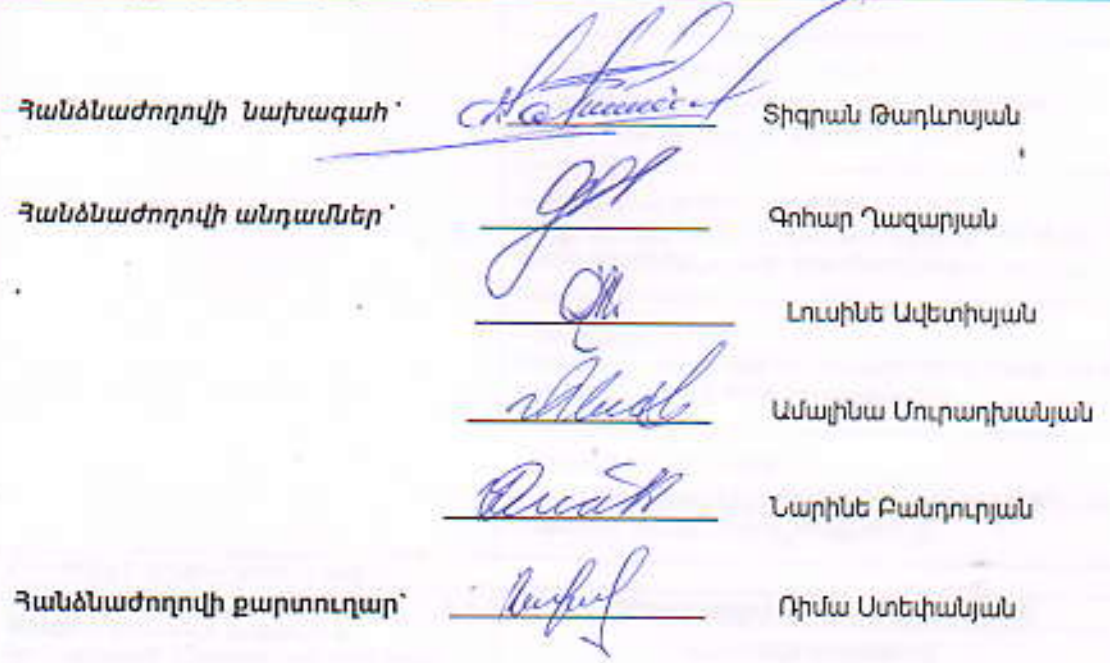 Հանձնաժողովի նախագահ՝ Տիգրան Թադևոսյան
Հանձնաժողովի անդամներ՝ Գոհար Ղազարյան
Լուսինե Ավետիսյան
Ամալինա Մուրադխանյան
Նարինե Բանդուրյան
Հանձնաժողովի քարտուղար՝ Ռիմա Ստեփանյան